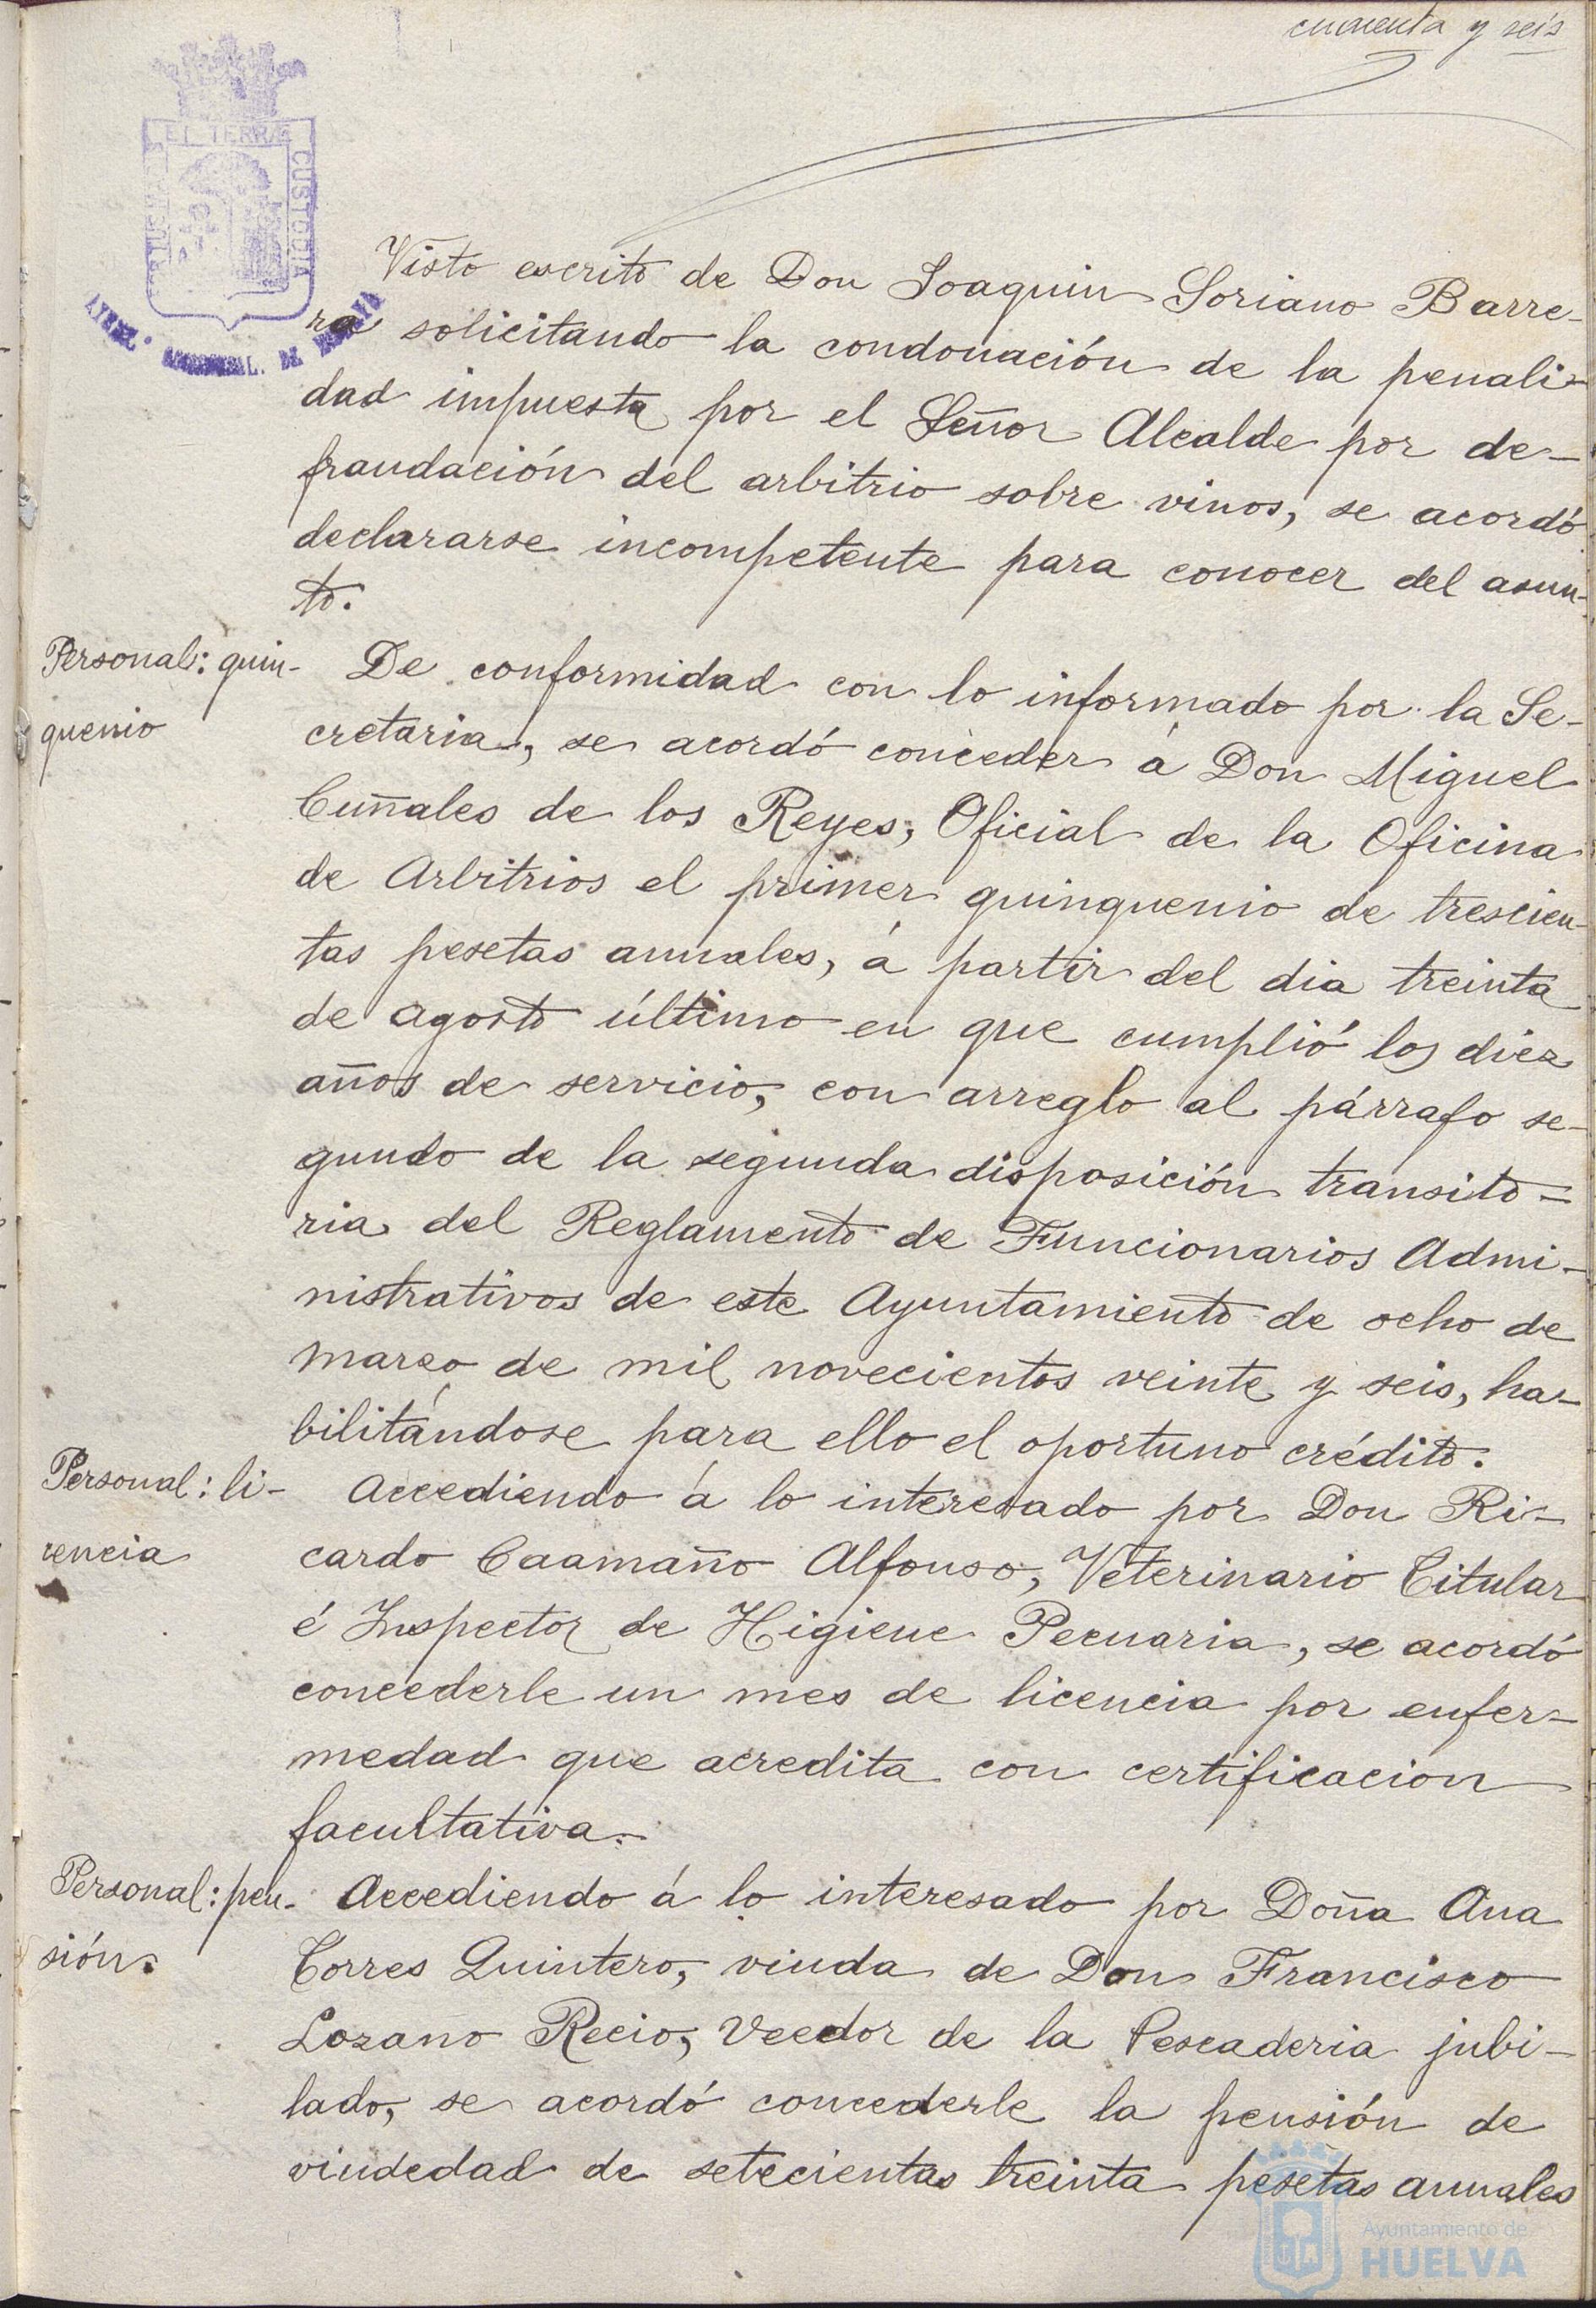 cincuenta y seis
ET TERRÆ
CUSTODIA
Visto escrito de Don Joaquin Soriano Barre-
ra solicitando la condonación de la penali-
dad impuesta por el Señor Alcalde por de-
fraudación del arbitrio sobre vinos, se acordó
declararse incompetente para conocer del asun-
to.
Personal: quin-
quenio
De conformidad con lo informado por la Se-
cretaria, se acordó conceder á Don Miguel
Cuñales de los Reyes, Oficial de la Oficina
de Arbitrios el primer quinquenio de trescien-
tas pesetas anuales, á partir del dia treinta
de agosto último en que cumplió los diez
años de servicio, con arreglo al párrafo se-
gundo de la segunda disposición transito-
ria del Reglamento de Funcionarios Admi-
nistrativos de este Ayuntamiento de ocho de
marzo de mil novecientos veinte y seis, ha-
bilitándose para ello el oportuno crédito.
Personal: li-
cencia
Accediendo á lo interesado por Don Ri-
cardo Caamaño Alfonso, Veterinario Titular
é Inspector de Higiene Pecuaria, se acordó
concederle un mes de licencia por enfer-
medad que acredita con certificacion
facultativa.
Personal: pen-
sión.
Accediendo á lo interesado por Doña Ana
Torres Quintero, viuda de Don Francisco
Lozano Recio, Veedor de la Pescaderia jubi-
lado, se acordó concederle la pensión de
viudedad de setecientas treinta pesetas anuales
Ayuntamiento de
HUELVA